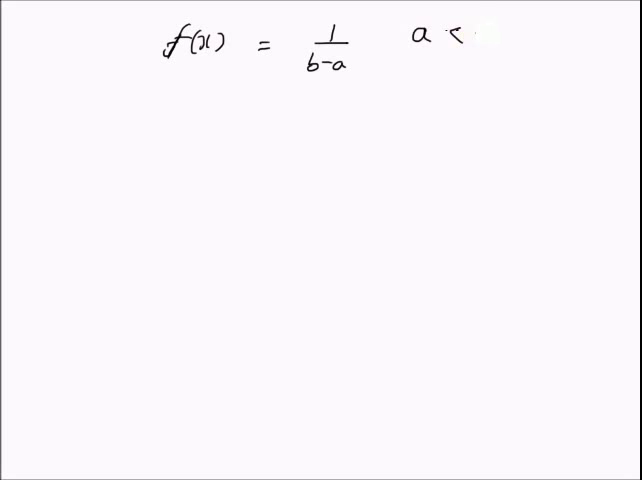 f(x) = 1/(b-a) a <